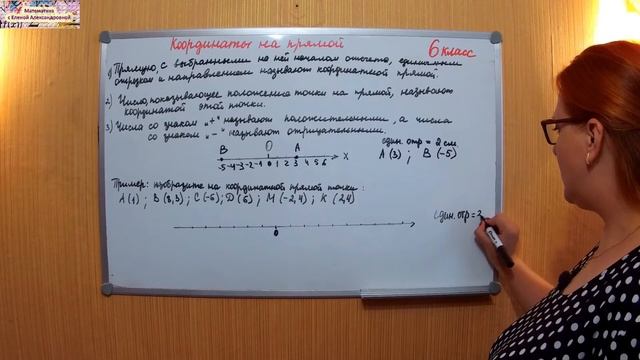 Математика
с Еленой Александровной
Координаты на прямой
6 класс
1) Прямую, с выбранными на ней началом отсчета, единичным
отрезком и направлением называют координатной прямой.
2) Число, показывающее положение точки на прямой, называют
координатой этой точки.
3) Числа со знаком „+" называют положительными, а числа
со знаком „-" называют отрицательными.
един. отр = 2 см.
A (3) ; B (-5)
B O A
-5 -4 -3 -2 -1 0 1 2 3 4 5 6 X
Пример: изобразите на координатной прямой точки :
A (1) ; B (3,3) ; C (-5) ; D (5) ; M (-2,4) ; K (2,4)
един. отр = 2
0